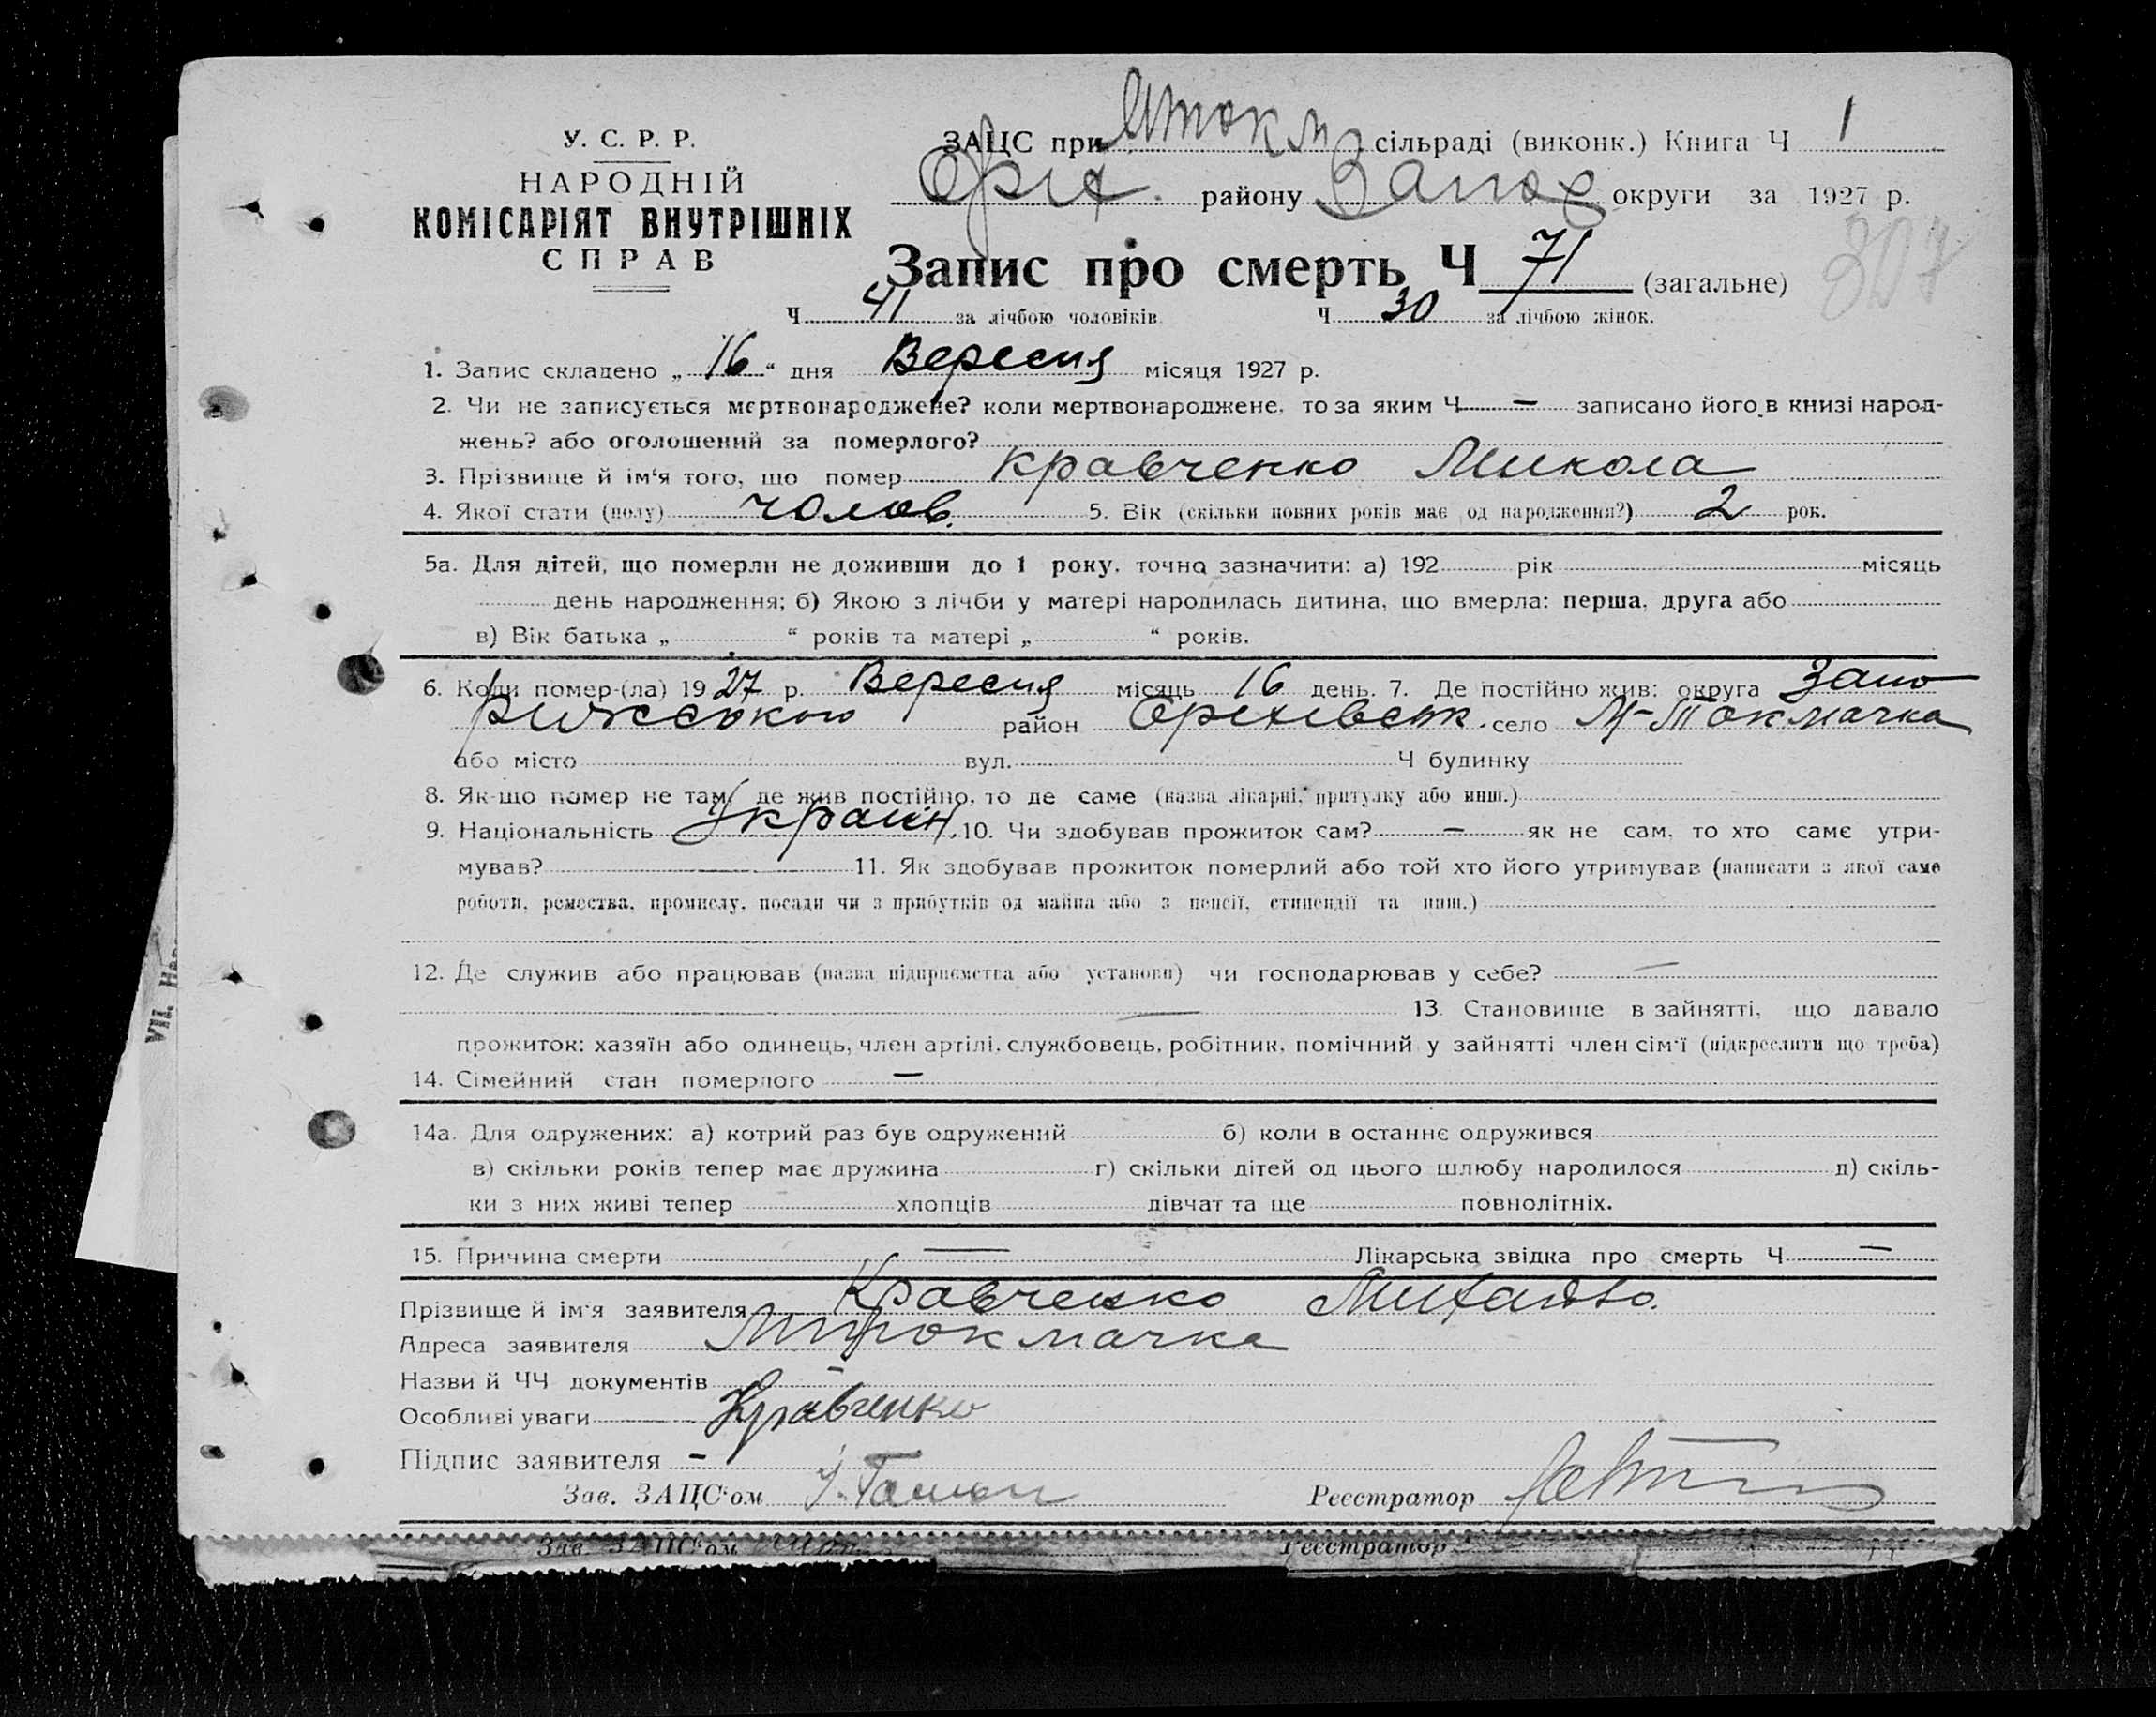 У. С. Р. Р.
НАРОДНІЙ
КОМІСАРІЯТ ВНУТРІШНІХ
СПРАВ
ЗАЦС при Мток м сільраді (виконк.) Книга Ч 1
Оріх. району Запор округи за 1927 р.
307
Запис про смерть Ч 71 (загальне)
Ч 41 за лічбою чоловіків. Ч 30 за лічбою жінок.
1. Запис складено „ 16 “ дня Вересня місяця 1927 р.
2. Чи не записується мертвонароджене? коли мертвонароджене, то за яким Ч — записано його в книзі народ-
жень? або оголошений за померлого?
3. Прізвище й ім‘я того, що помер Кравченко Микола
4. Якої стати (полу) чолов. 5. Вік (скільки повних років має од народження?) 2 рок.
5а. Для дітей, що померли не доживши до 1 року, точно зазначити: а) 192 рік місяць
день народження; б) Якою з лічби у матері народилась дитина, що вмерла: перша, друга або
в) Вік батька „ “ років та матері „ “ років.
6. Коли помер-(ла) 1927 р. Вересня місяць 16 день. 7. Де постійно жив: округа Запо
рижською район Оріхівськ. село М-Токмачка
або місто вул. Ч будинку
8. Як-що помер не там, де жив постійно, то де саме (назва лікарні, притулку або инш.)
9. Національність Україн. 10. Чи здобував прожиток сам? — як не сам, то хто саме утри-
мував? — 11. Як здобував прожиток померлий або той хто його утримував (написати з якої саме
роботи, ремества, промислу, посади чи з прибутків од майна або з пенсії, стипендії та инш.)
12. Де служив або працював (назва підприємства або установи) чи господарював у себе? —
— 13. Становище в зайнятті, що давало
прожиток: хазяїн або одинець, член артілі, службовець, робітник, помічний у зайнятті член сім‘ї (підкреслити що треба)
14. Сімейний стан померлого —
14а. Для одружених: а) котрий раз був одружений б) коли в останнє одружився
в) скільки років тепер має дружина г) скільки дітей од цього шлюбу народилося д) скіль-
ки з них живі тепер хлопців дівчат та ще повнолітніх.
15. Причина смерти — Лікарська звідка про смерть Ч —
Прізвище й ім‘я заявителя Кравченко
Адреса заявителя Мтокмачка
Назви й ЧЧ документів —
Особливі уваги Кравченко
Підпис заявителя —
Зав. ЗАЦС‘ом Реєстратор
Зав. ЗАЦС‘ом Реєстратор
VII. Нар